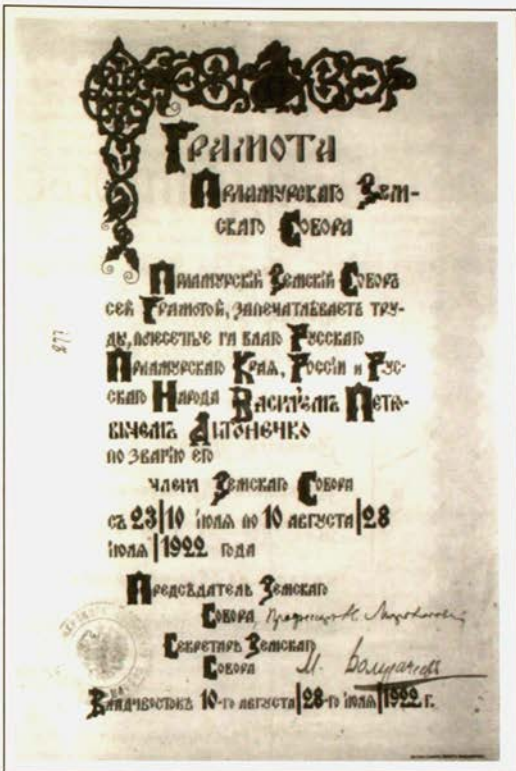 Грамота
Приамурскаго Зем-
скаго Собора
Приамурскій Земскій Соборъ
сей Грамотой, запечатлѣваетъ тру-
ды, на благо Русскаго
Приамурскаго Края, Россіи и Рус-
скаго Народа Василіемъ Петро-
вичемъ
по званію его
члена Земскаго Собора
съ 23|10 іюля по 10 августа|28
іюля|1922 года
Предсѣдатель Земскаго
Собора,
Секретарь Земскаго
Собора М.
Владивостокъ 10-го августа|28-го іюля|1922 г.